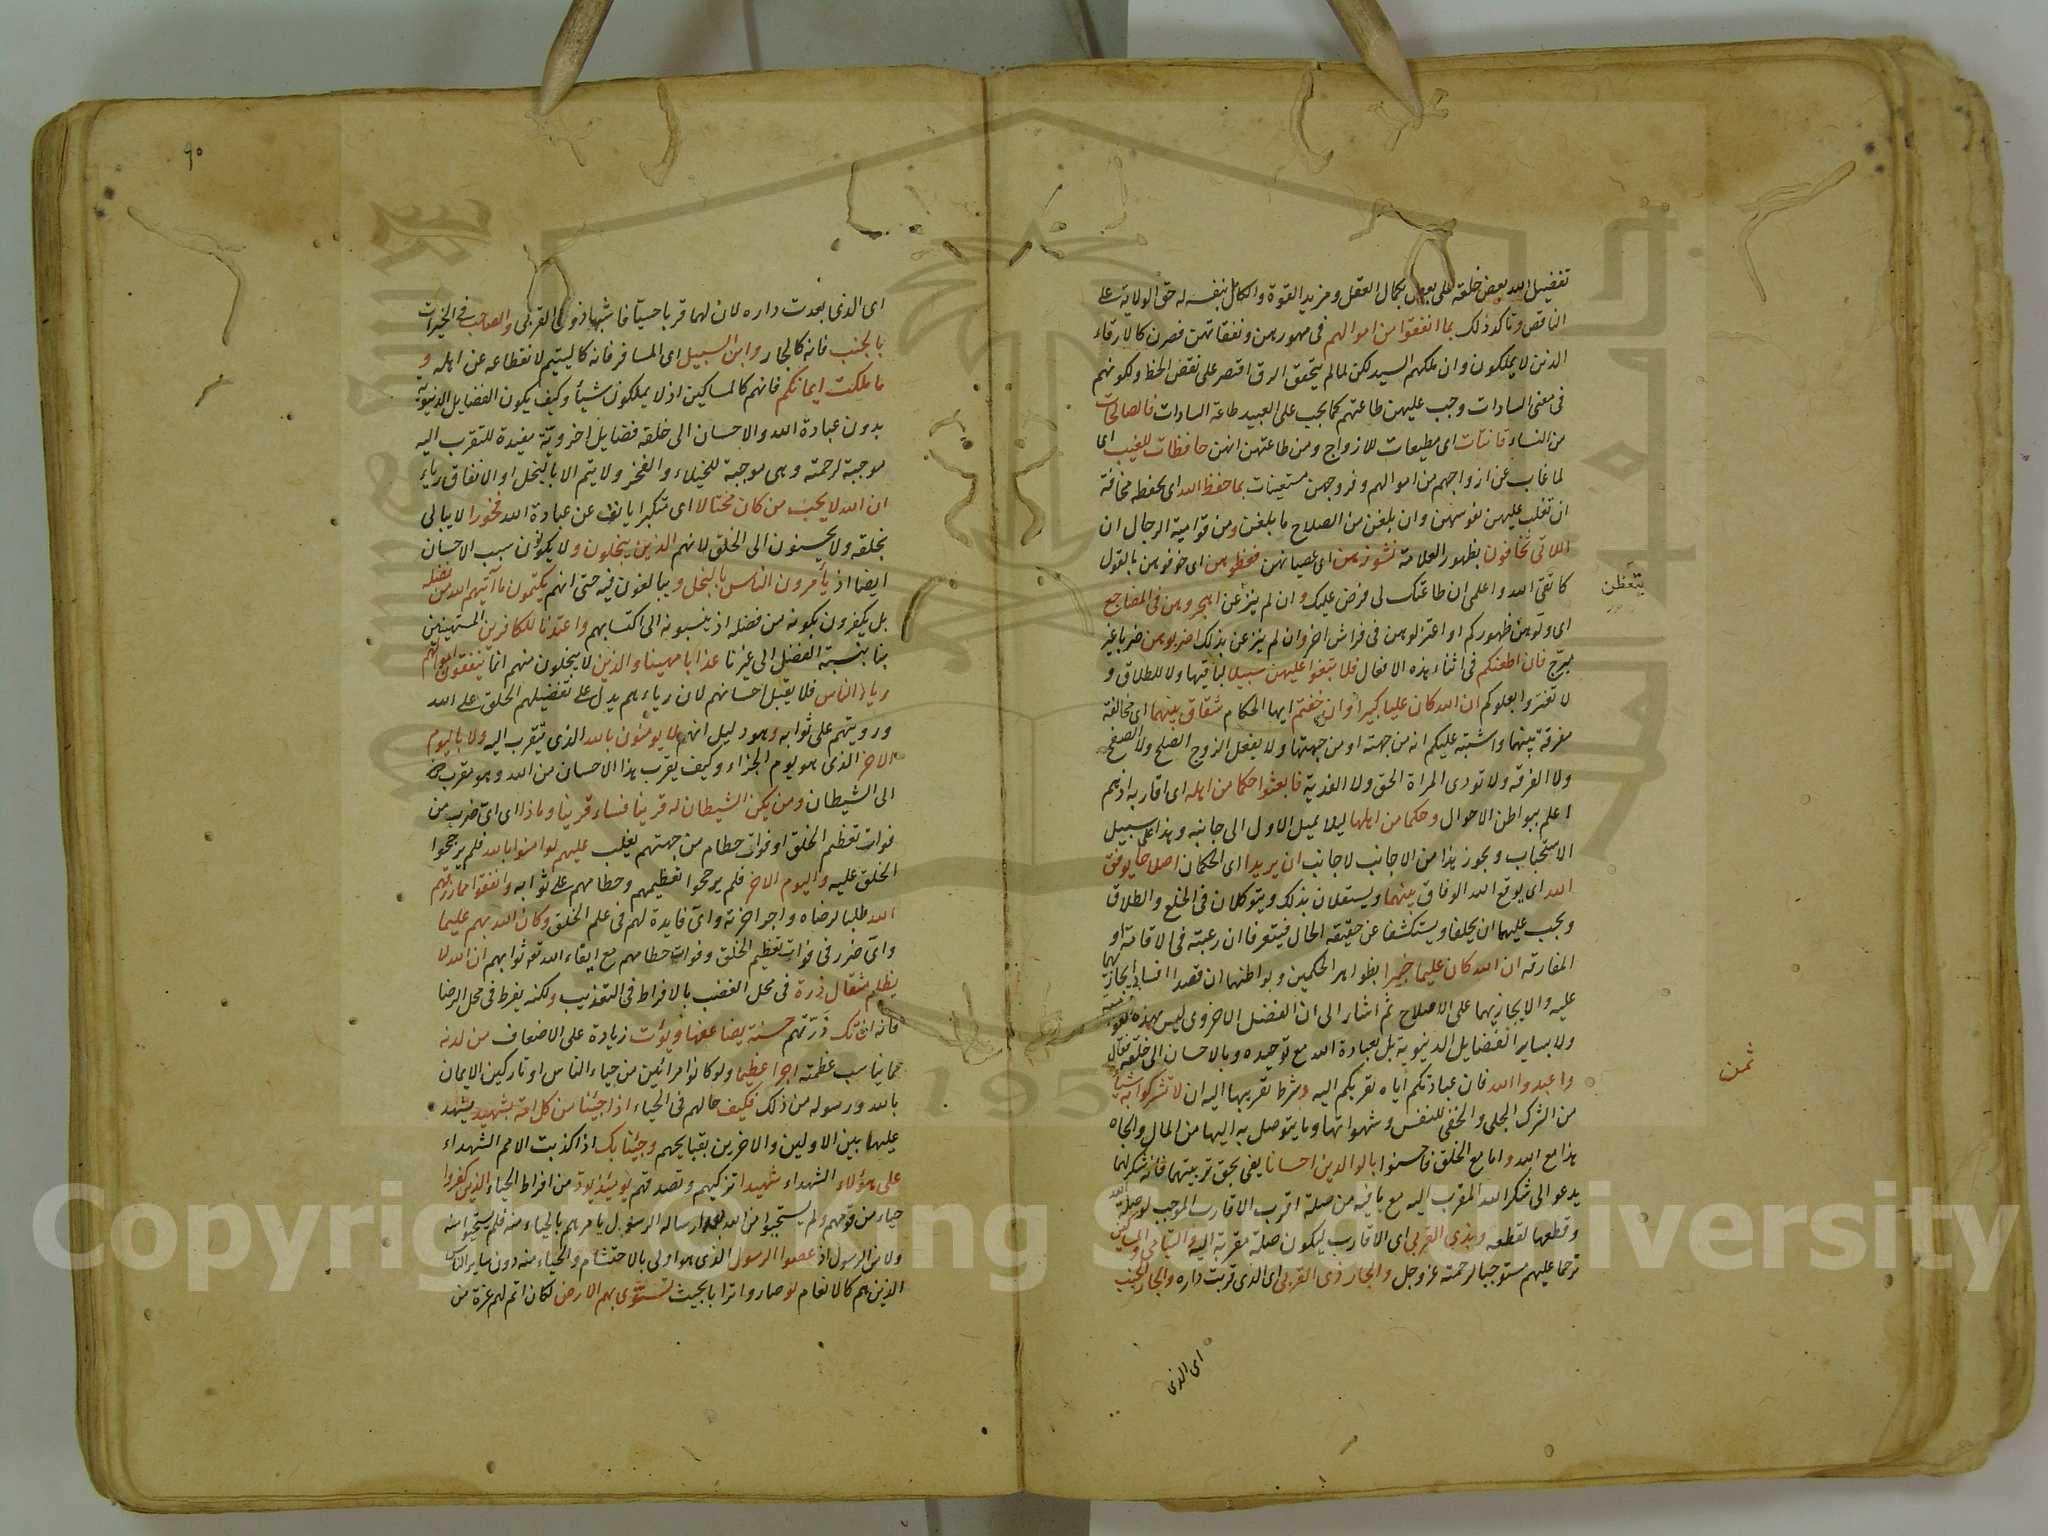 تفضيل الله بعض خلقه على بعض بكمال العقل ومزيد القوة والكامل بنفسه له حق الولاية على
الناقص وتأكد ذلك بما انفقوا من اموالهم فى مهورهن ونفقاتهن فصرن كالارقاء
الذين لا يملكون وان ملكهم السيد لكن لما لم يتحقق الرق اقتصر على نقض الحظ ولكونهم
فى معنى السادات وجب عليهن طاعتهم كما يجب على العبيد طاعة السادات فالصالحات
من النساء قانتات اى مطيعات للازواج ومن طاعتهن انهن حافظات للغيب اى
لما غاب عن ازواجهم من اموالهم وفروجهن مستعينات بما حفظ الله اى بحفظه مخافة
ان تغلب عليهن نفوسهن وان بلغن من الصلاح ما بلغن ومن قوامية الرجال ان
اللاتى تخافون بظهور العلامة نشوزهن اى عصيانهن فعظوهن اى خوفوهن بالقول
كاتقى الله واعلمى ان طاعتك لى فرض عليك وان لم ينزعن اهجروهن فى المضاجع
يتعظن
اى ولوهن ظهوركم او اعتزلوهن فى فراش اخر وان لم ينزعن بذلك اضربوهن ضربا غير
مبرح فان اطعنكم فى اثناء هذه الافعال فلا تبغوا عليهن سبيلا لباقيها ولا للطلاق و
لا تغتروا بعلوكم ان الله كان عليا كبيرا وان خفتم ايها الحكام شقاق بينهما اى مخالفة
مفرقة بينهما واشتبه عليكم انه من جهته او من جهتها ولا يفعل الزوج الصلح ولا الصفح
ولا الفرقه ولا تودى المراة الحق ولا الفدية فابعثوا حكما من اهله اى اقاربه اذ هم
اعلم ببواطن الاحوال وحكما من اهلها ليلا يميل الاول الى جانبه وهذا على سبيل
الاستحباب ويجوز هذا من الاجانب لا جانب ان يريدا اى الحكمان اصلاحا يوفق
الله اى يوقع الله الوفاق بينهما ويستعلان بذلك ويتوكلان فى الخلع والطلاق
ويجب عليهما ان يخلفا ويستكشفا عن حقيقه الحال فيتعرفا ان رغبته فى الاقامة او
المفارقه ان الله كان عليما خبيرا بظواهر الحكمين وبواطنهما ان قصدا افسادا يجازيهما
عليه والا يجازيهما على الاصلاح ثم اشار الى ان الفضل الاخروى ليس بهذه
ولا بساير الفضايل الدنيوية بل بعبادة الله مع توحيده وبالاحسان الى خلقه فقال
واعبدوا الله فان عبادتكم اياه تقربكم اليه وشرط تقريبها اليه ان لا تشركوا به شيأ
ثمن
من الشرك الجلى والخفى للنفس وشهواتها وما يتوصل به اليها من المال والجاه
هذا مع الله واما مع الخلق فاحسنوا بالوالدين احسانا يفى بحق تربيتهما فان شكرهما
يدعو الى شكر الله المقرب اليه مع ما فيه من صلة اقرب الاقارب الموجب لوصلة الله
وقطعها لقطعه وبذى القربى اى الاقارب ليكون صلة مقربة اليه واليتامى والمساكين
ترحما عليهم مستوجبا لرحمته عز وجل والجار ذى القربى اى الذى قربت داره والجار الجنب
اى الذى
٩٠
اى الذى بعدت داره لان لهما قربا حسيا فاشبها ذوى القربى والصاحب فى الخيرات
بالجنب فانه كالجار وابن السبيل اى المسافر فانه كاليتيم لانقطاعه عن اهله و
ما ملكت ايمانكم فانهم كالمساكين اذ لا يملكون شيأ وكيف يكون الفضايل الدنيوية
بدون عبادة الله والاحسان الى خلقه فضايل اخروية مفيدة للتقرب اليه
موجبة لرحمته وهى موجبة للخيلاء والفخر ولا يتم الا بالبخل او الانفاق رياء
ان الله لا يحب من كان مختالا اى متكبرا يانف عن عبادة الله فخورا لا يبالى
بخلقه ولا يحسنون الى الخلق لانهم الذين يبخلون ولا يكونون سبب الاحسان
ايضا اذ يأمرون الناس بالبخل ويبالغون فيه حتى انهم يكتمون ما آتيهم الله من فضله
بل يكفرون بكونه من فضله اذ ينسبونه الى اكتسابهم واعتدنا للكافرين المستهينين
بنا بنسبة الفضل الى غيرنا عذابا مهينا والذين لا يبخلون منهم انما ينفقون اموالهم
رياء الناس فلا يقبل احسانهم لان رياءهم يدل على تفضيلهم الخلق على الله
ورويتهم على ثوابه وهو دليل انهم لا يومنون بالله الذى يتقرب اليه ولا باليوم
الاخر الذى هو يوم الجزاء وكيف يقرب هذا الاحسان من الله وهو مقرب
الى الشيطان ومن يكن الشيطان له قرينا فساء قرينا وماذا اى اى ضرب من
فوات تعظيم الخلق او فوات حطام من جهتهم يغلب عليهم لو امنوا بالله فلم يرجحوا
الخلق عليه واليوم الاخر فلم يرجحوا تعظيمهم وحطامهم على ثوابه وانفقوا مما رزقهم
الله طلبا لرضاه واجر اخرته واى فايدة لهم فى علم الخلق وكان الله بهم عليما
واى ضرر فى فوات تعظيم الخلق وفوات حطامهم مع ايفاء الله تعه ثوابهم ان الله لا
يظلم مثقال ذرة فى محل الغضب بالافراط فى التعذيب ولكنه يفرط فى محل الرضا
فانه ان تك ذرتهم حسنة يضاعفها ويؤت زيادة على الاضعاف من لدنه
مما يناسب عظمته اجرا عظيما ولو كانوا مرائين من حياء الناس او تاركين الايمان
بالله ورسوله من ذلك فكيف حالهم فى الحياء اذا جئنا من كل امة بشهيد يشهد
عليها بين الاولين والاخرين بقبايحهم وجئنا بك اذا كذبت الامم الشهداء
على هؤلاء الشهداء شهيدا تزكيهم وتصدقهم يومئذ يود من افراط الحياء الذين كفروا
حياء من قومهم ولم يستحيوا من الله بعد ارساله الرسول يامرهم بالحياء منه فلم يستحيوا منه
ولا من الرسول اذ عصوا الرسول الذى هو اولى بالاحتشام والحياء منه دون ساير الناس
الذين هم كالانعام لو صاروا ترابا بحيث تسوى بهم الارض لكان اتم لهم عزة من
Copyright © King Saud University